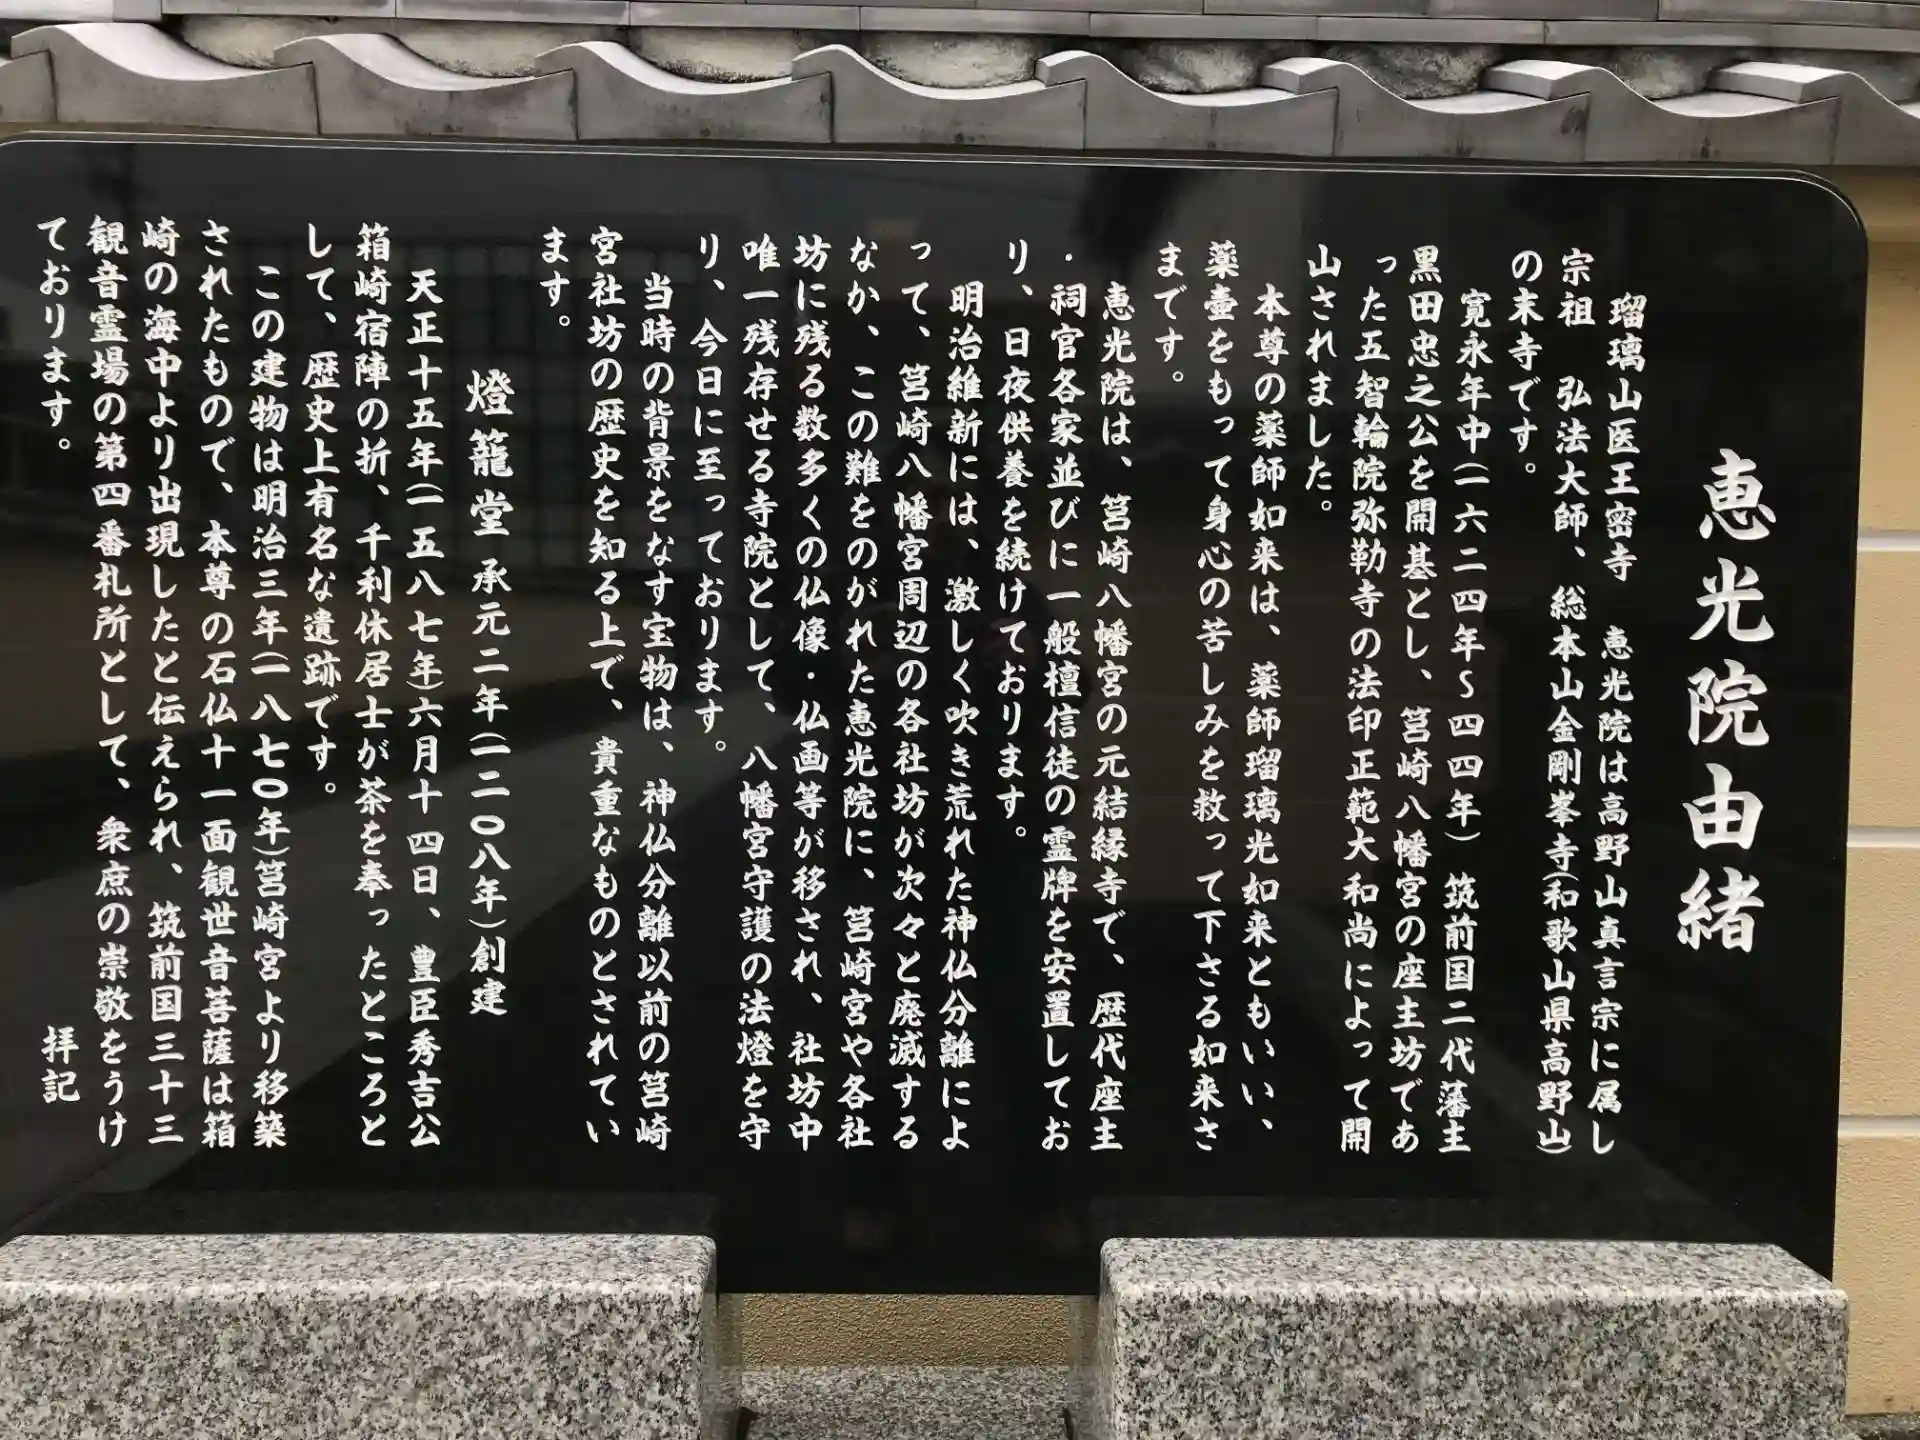 恵光院由緒
瑠璃山医王密寺　恵光院は高野山真言宗に属し
宗祖　弘法大師、総本山金剛峯寺(和歌山県高野山)
の末寺です。
寛永年中(一六二四年～四四年)　筑前国二代藩主
黒田忠之公を開基とし、筥崎八幡宮の座主坊であ
った五智輪院弥勒寺の法印正範大和尚によって開
山されました。
本尊の薬師如来は、薬師瑠璃光如来ともいい、
薬壷をもって身心の苦しみを救って下さる如来さ
まです。
恵光院は、筥崎八幡宮の元結縁寺で、歴代座主
・祠官各家並びに一般檀信徒の霊牌を安置してお
り、日夜供養を続けております。
明治維新には、激しく吹き荒れた神仏分離によ
って、筥崎八幡宮周辺の各社坊が次々と廃滅する
なか、この難をのがれた恵光院に、筥崎宮や各社
坊に残る数多くの仏像・仏画等が移され、社坊中
唯一残存せる寺院として、八幡宮守護の法燈を守
り、今日に至っております。
当時の背景をなす宝物は、神仏分離以前の筥崎
宮社坊の歴史を知る上で、貴重なものとされてい
ます。
燈籠堂 承元二年(一二〇八年)創建
天正十五年(一五八七年)六月十四日、豊臣秀吉公
箱崎宿陣の折、千利休居士が茶を奉ったところと
して、歴史上有名な遺跡です。
この建物は明治三年(一八七〇年)筥崎宮より移築
されたもので、本尊の石仏十一面観世音菩薩は箱
崎の海中より出現したと伝えられ、筑前国三十三
観音霊場の第四番札所として、衆庶の崇敬をうけ
ております。
拝記